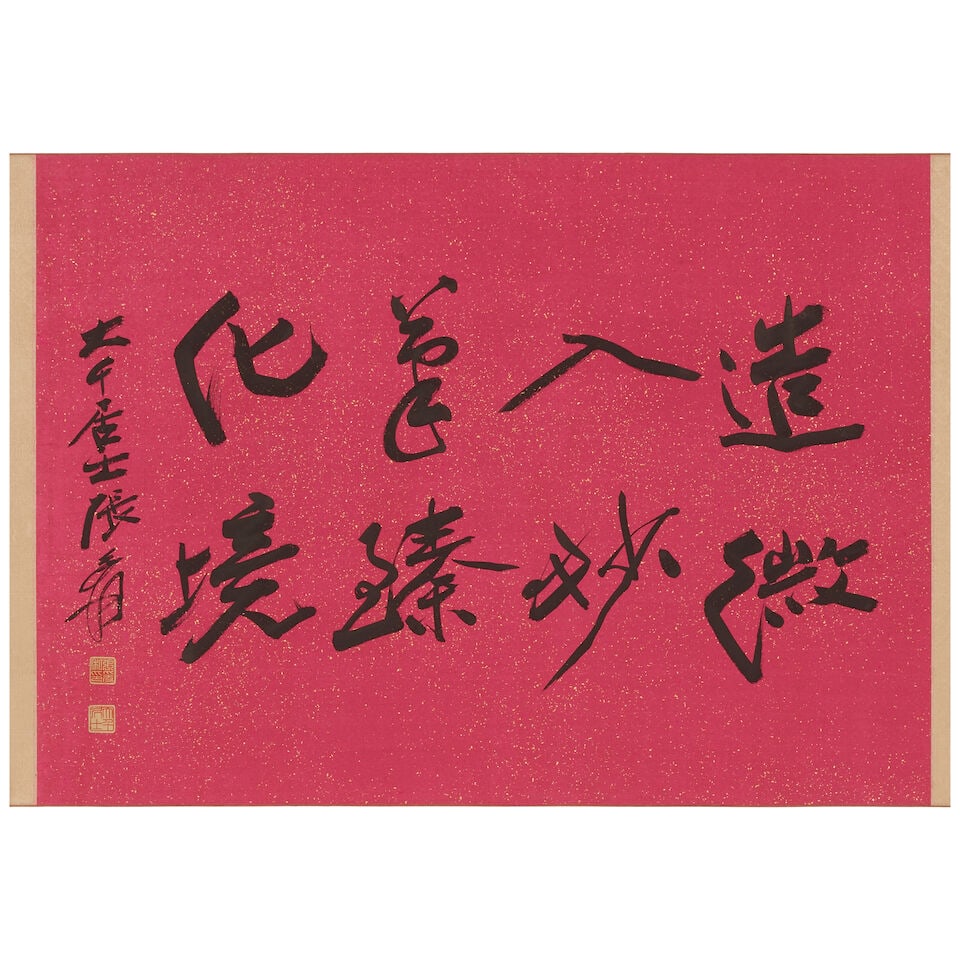 造微
入妙
筆臻
化境
大千居士張爰